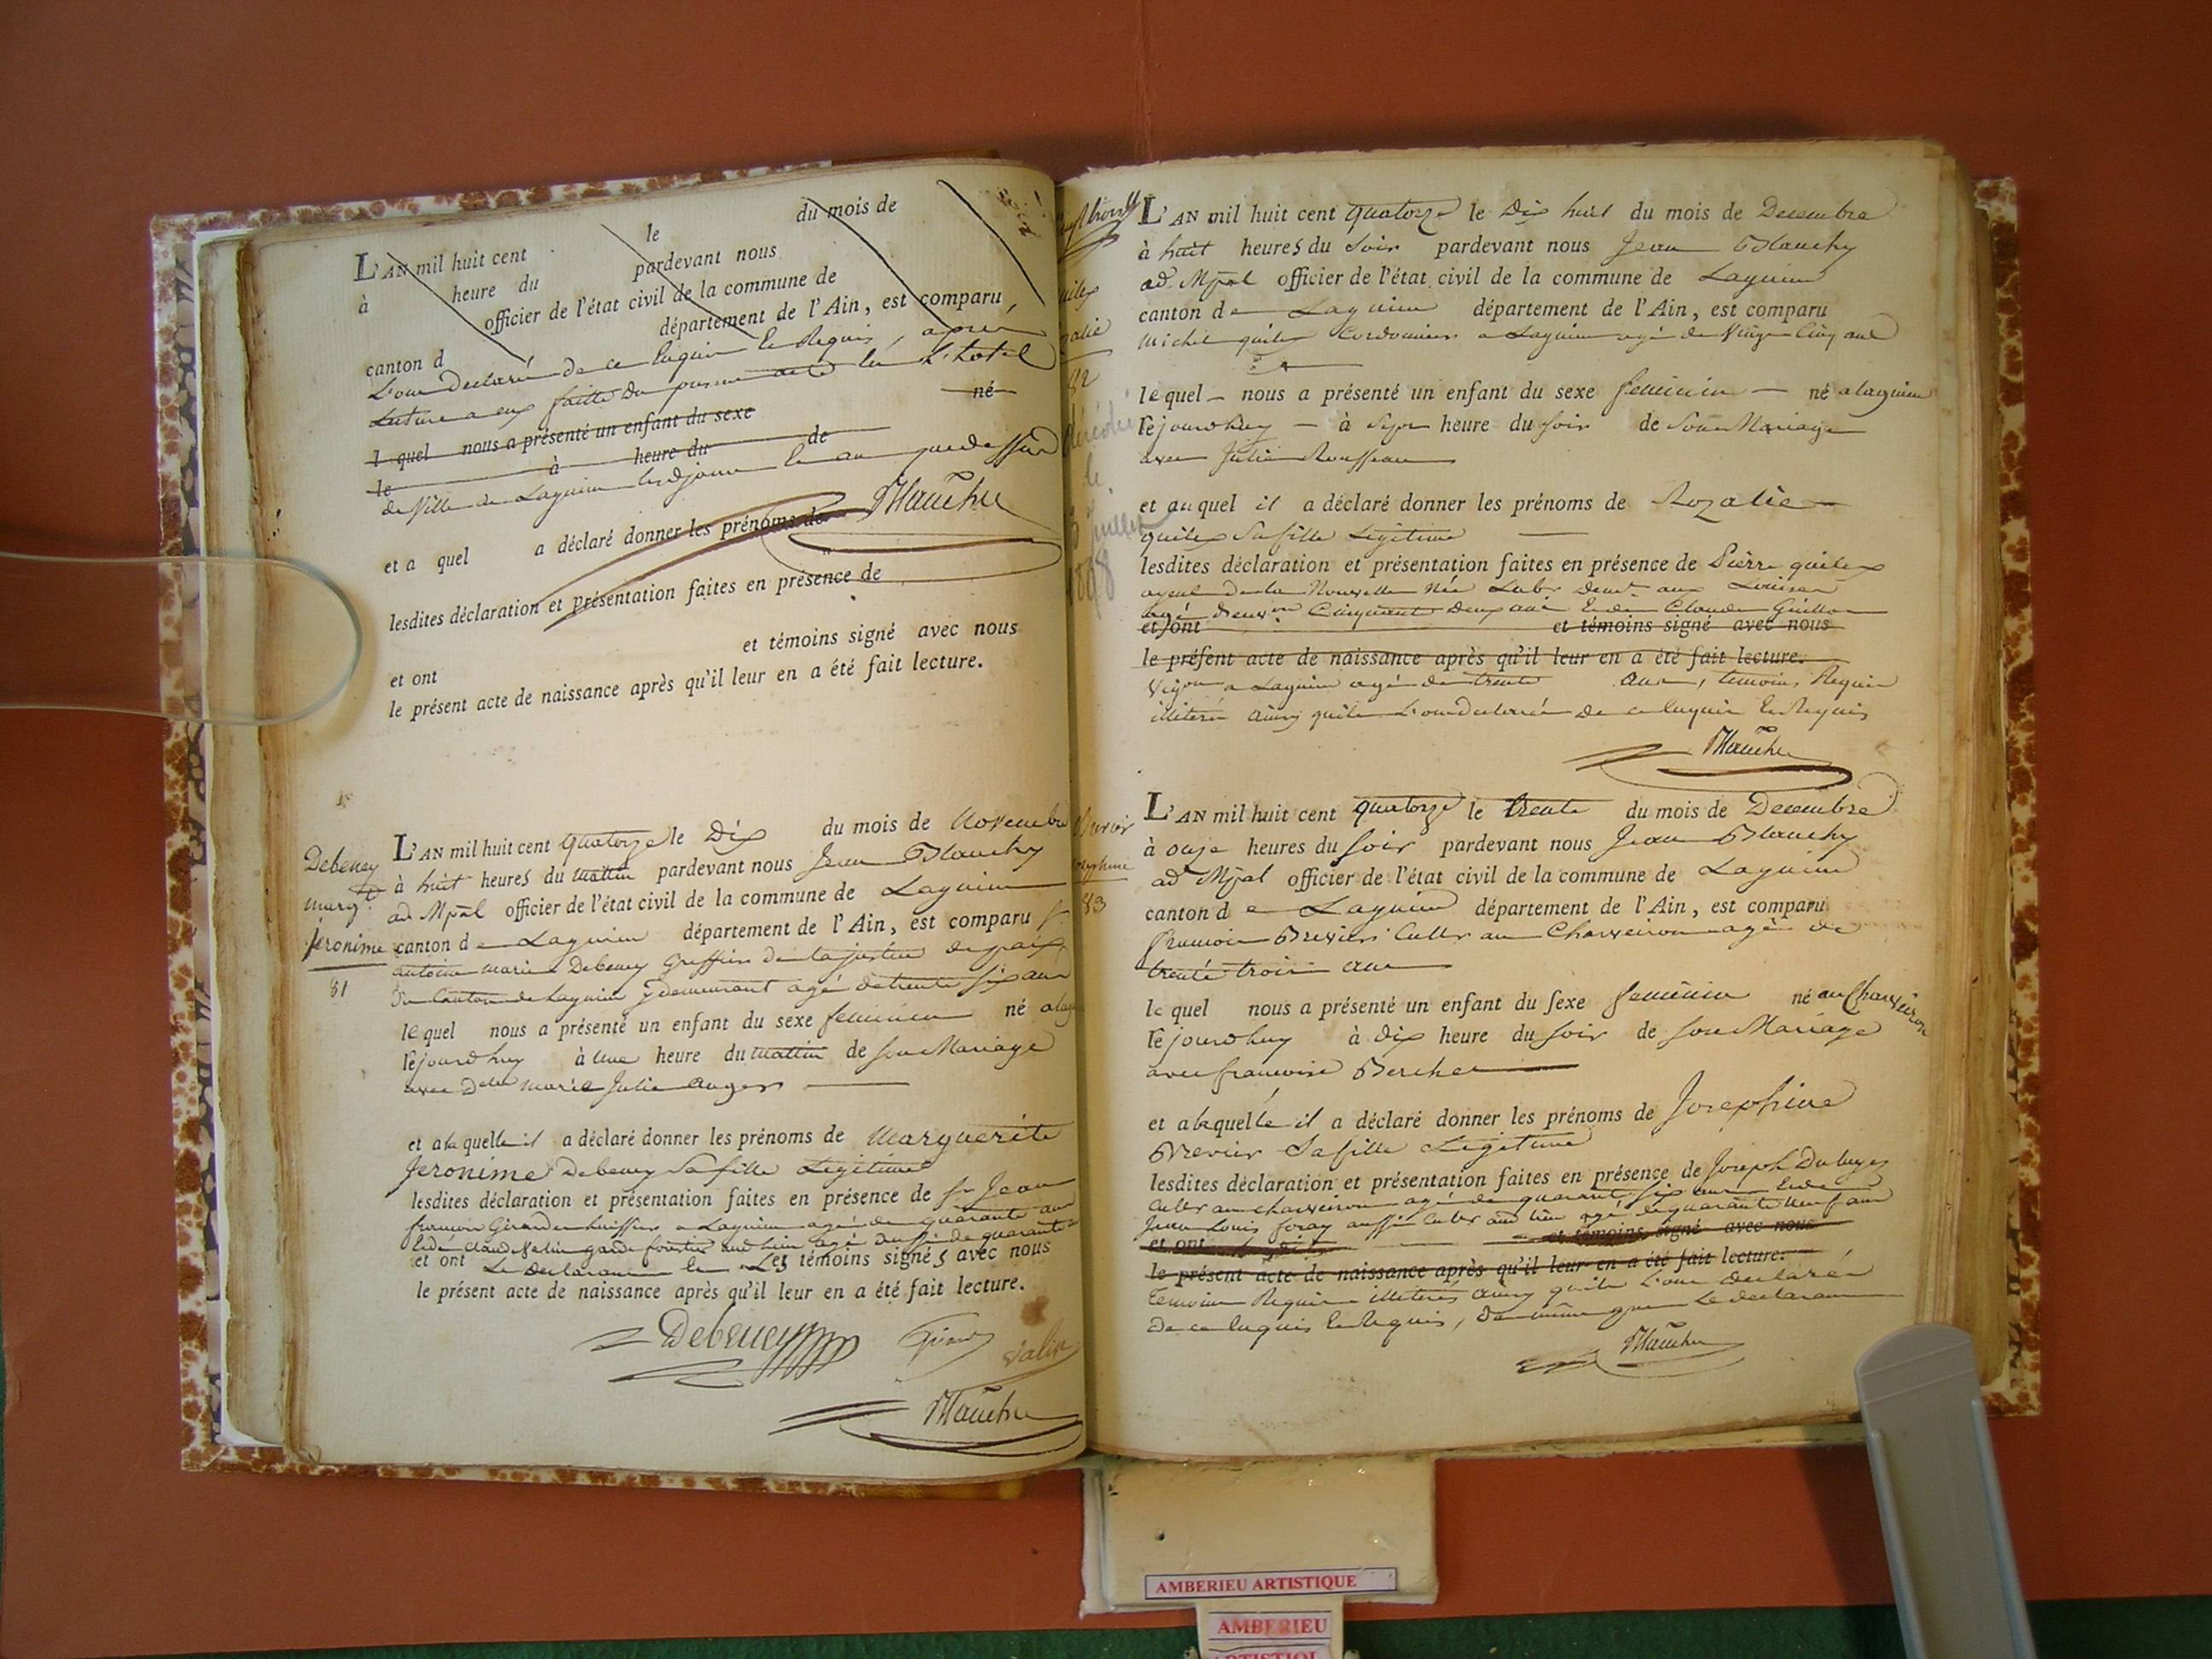 L'AN mil huit cent le du mois de
à heure du pardevant nous
officier de l'état civil de la commune de
canton d département de l'Ain, est comparu
l'ont declaré de ce enquis et Requis, après
lecture a eux faitte du present acte en l'hotel
l quel nous a présenté un enfant du sexe né
le à heure du de
de Ville de Lagnieu lesdjour et an que dessus
Blanchy
et a quel a déclaré donner les prénoms de
lesdites déclaration et présentation faites en présence de
et ont et témoins signé avec nous
le présent acte de naissance après qu'il leur en a été fait lecture.
Debeney
marg.te
Jeronime
81
L'AN mil huit cent quatorze le Dix du mois de Novembre
à huit heures du mattin pardevant nous Jean Blanchy
ad. Mpal officier de l'état civil de la commune de Lagnieu
canton de Lagnieu département de l'Ain, est comparu Sr
antoine marie Debeney Greffier de la justice de paix
du Canton de Lagnieu y demeurant agé de trente six ans
lequel nous a présenté un enfant du sexe feminin né a lag
cejourdhuy à une heure du mattin de son Mariage
avec Dlle marie Julie auger
et a laquelle il a déclaré donner les prénoms de Marguerite
Jeronime Debeney Sa fille Legitime
lesdites déclaration et présentation faites en présence de Sr Jean
françois Girard huissier a Lagnieu agé de quarante ans
et de Claud Valin garde forestier aud lieu agé aussi de quarante
et ont Le declarant et Les témoins signés avec nous
le présent acte de naissance après qu'il leur en a été fait lecture.
Debeney Girard Valin
Blanchy
82
décédée
le
juillet
1898
L'AN mil huit cent quatorze le Dix huit du mois de Decembre
à huit heures du soir pardevant nous Jean Blanchy
ad. Mpal officier de l'état civil de la commune de Lagnieu
canton de Lagnieu département de l'Ain, est comparu
Michel quilex Cordonnier a Lagnieu agé de Vingt Cinq ans
lequel nous a présenté un enfant du sexe feminin né a lagnieu
cejourdhuy à Sept heure du soir de Son Mariage
avec Julie Rousseau
et au quel il a déclaré donner les prénoms de Rozalie
quilex Sa fille Legitime
lesdites déclaration et présentation faites en présence de Pierre quilex
ayeul de la Nouvelle Née Cultr demt aux
agé d'envon Cinquante Deux ans et de Claude Guillon
et ont et témoins signé avec nous
le présent acte de naissance après qu'il leur en a été fait lecture.
Vigon a Lagnieu agé de trente ans, temoins Requis
illiterés ainsy quils l'ont declaré de ce enquis et Requis
Blanchy
83
L'AN mil huit cent quatorze le trente du mois de Decembre
à onze heures du soir pardevant nous Jean Blanchy
ad Mpal officier de l'état civil de la commune de Lagnieu
canton de Lagnieu département de l'Ain, est comparu
françois Brevier Cultr au Charveiron agé de
trente trois ans
lequel nous a présenté un enfant du sexe feminin né au Charveiron
cejourdhuy à dix heure du soir de son Mariage
avec francoise Bercher
et a laquelle il a déclaré donner les prénoms de Josephine
Brevier Sa fille Legitime
lesdites déclaration et présentation faites en présence de Joseph
Cultr au Charveiron agé de quarante six ans et de
Jean Louis foray aussi Cultr aud lieu agé de quarante neuf ans
et ont et témoins signé avec nous
le présent acte de naissance après qu'il leur en a été fait lecture.
temoins Requis illiterés ainsy quils l'ont declaré
de ce enquis et Requis, de même que Le declarant
Blanchy
AMBERIEU ARTISTIQUE
AMBERIEU
ARTISTIQU